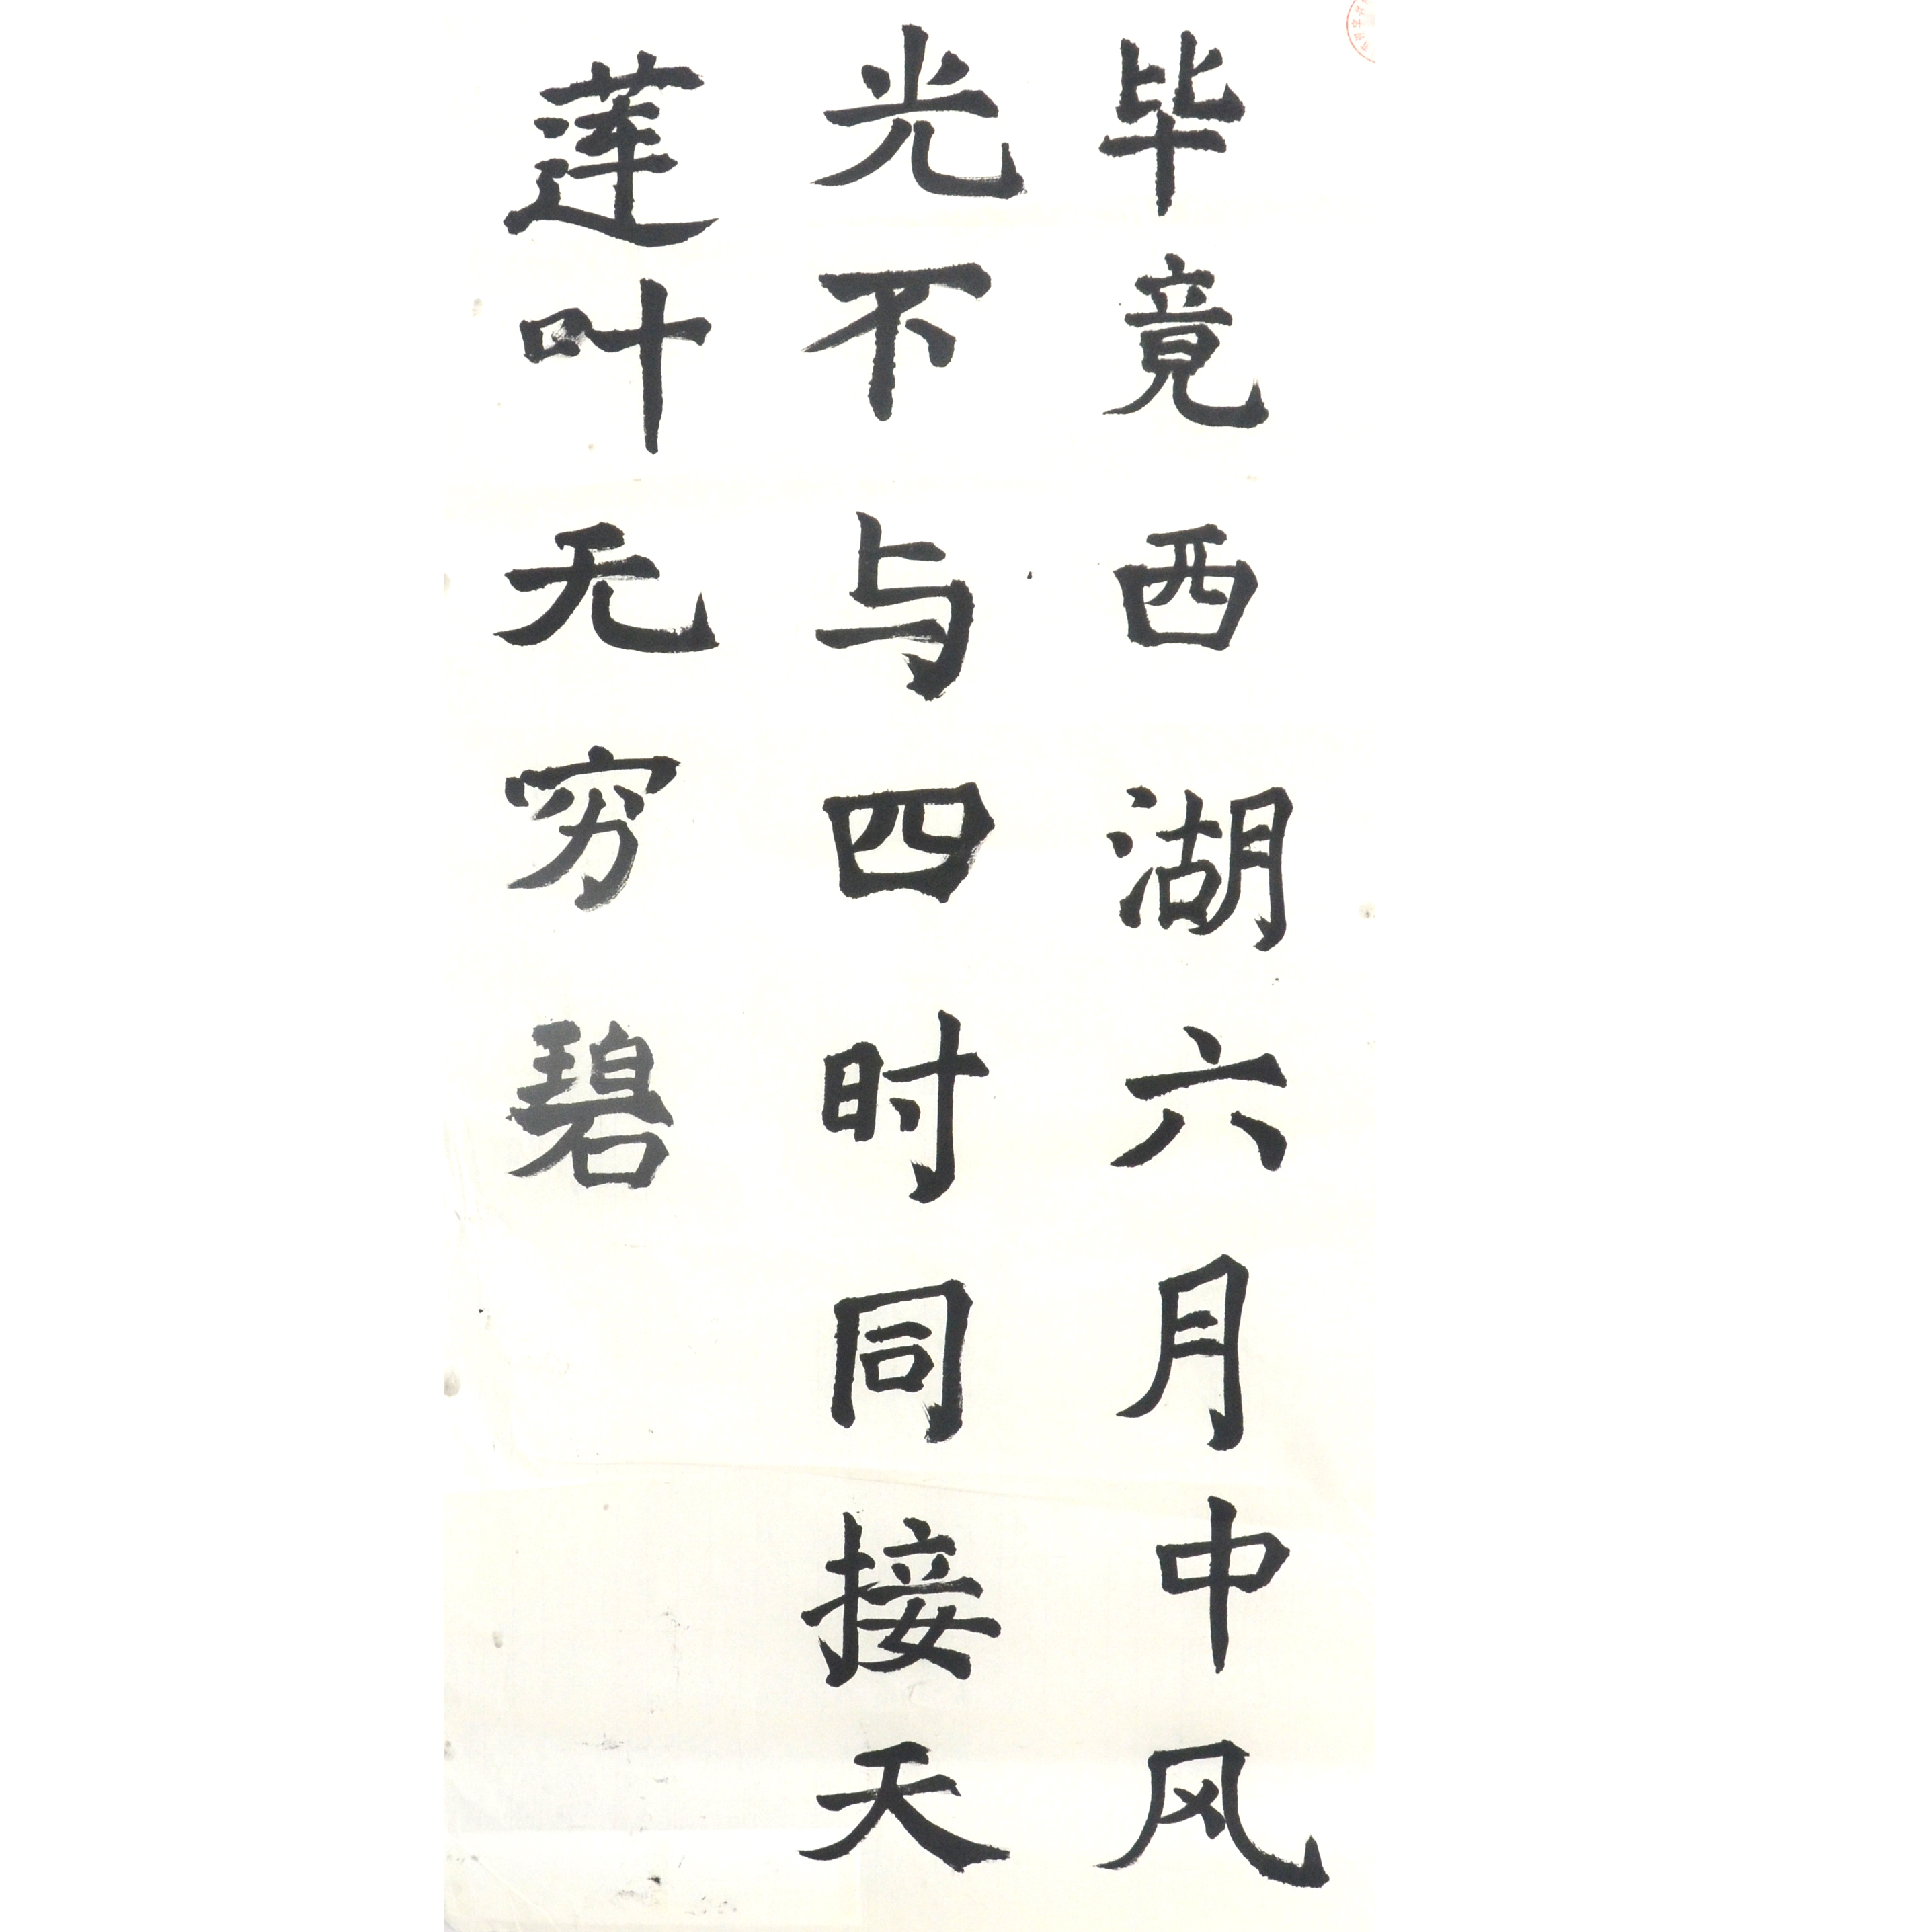 毕竟西湖六月中风
光不与四时同接天
莲叶无穷碧